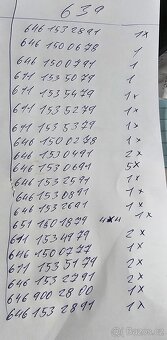 639
646 153 2891 1x
646 150 0678 1
646 150 0791 1
611 153 5079 1
611 153 5479 1x
611 153 5279 1x
611 153 5379 1x
646 150 0278 1x
646 153 0491 2x
646 153 0691 5x
646 153 2591 1x
646 153 0891 1x
646 153 2691 1x
651 150 1879 1x
611 153 4979 2x
646 150 0777 1x
611 153 5179 2x
646 153 2791 2x
646 900 2800 1x
646 153 2891 1x